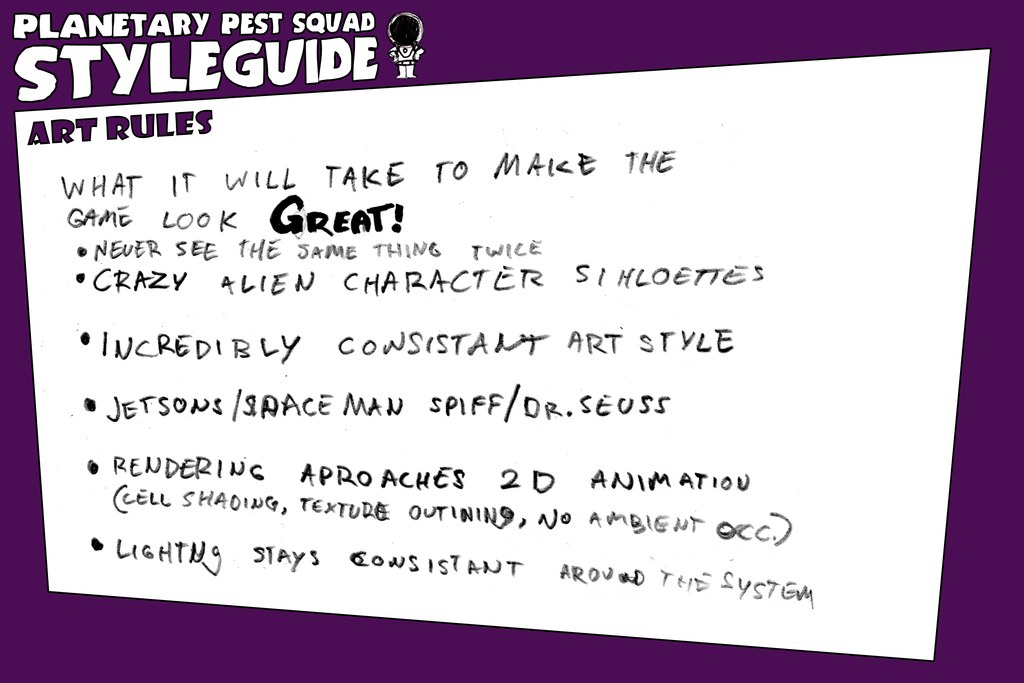 PLANETARY PEST SQUAD
STYLEGUIDE
ART RULES
WHAT IT WILL TAKE TO MAKE THE
GAME LOOK GREAT!
• NEVER SEE THE SAME THING TWICE
• CRAZY ALIEN CHARACTER SIHLOETTES
• INCREDIBLY CONSISTANT ART STYLE
• JETSONS/SPACEMAN SPIFF/DR. SEUSS
• RENDERING APROACHES 2D ANIMATION
(CELL SHADING, TEXTURE OUTINING, NO AMBIENT OCC.)
• LIGHTNG STAYS CONSISTANT AROUND THE SYSTEM